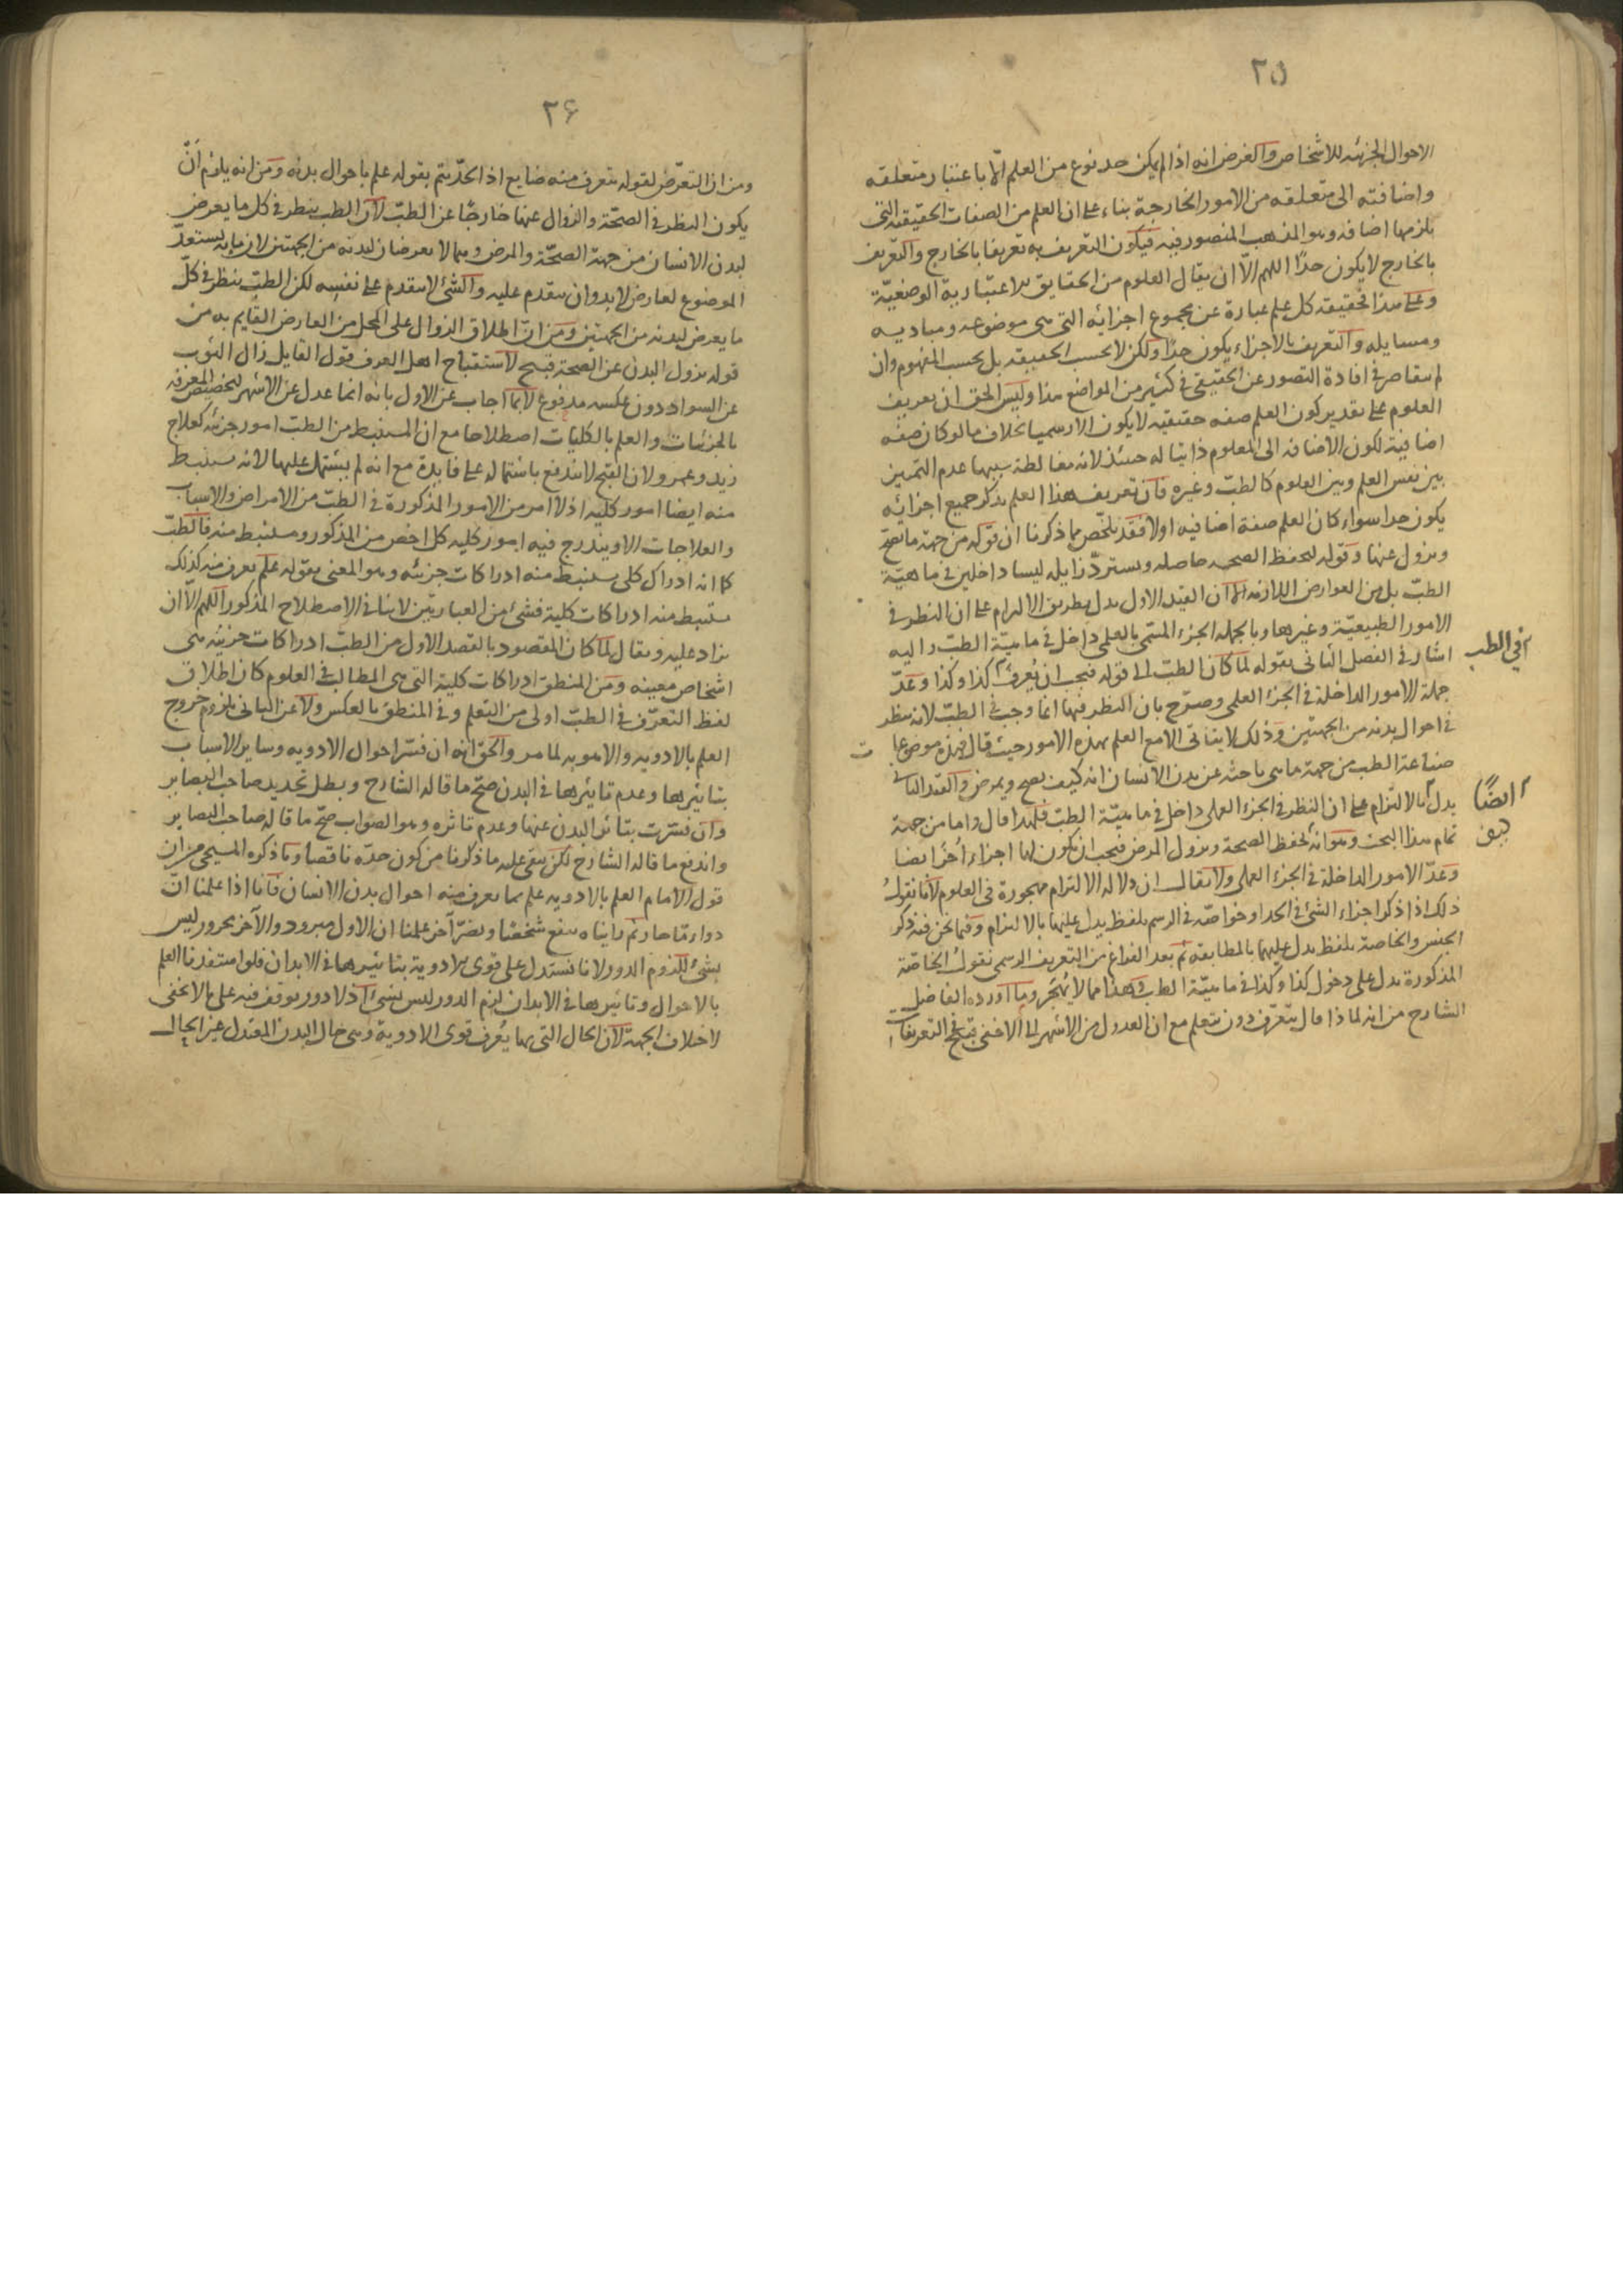 ٢٥
الاحوال الجزئيه للاشخاص والغرض انه اذا لم يكن حد نوع من العلم الّا باعتبار متعلقه
واضافته الى متعلقه من الامور الخارجة بناء على ان العلم من الصفات الحقيقيه التى
يلزمها اضافه وهو المذهب المنصور فيه فيكون التعريف به تعريفا بالخارج والتعريف
بالخارج لا يكون حدّا اللهم الّا ان يقال العلوم من الحقايق الاعتبارية الوضعيّة
وعلى هذا الحقيقه كل علم عبارة عن مجموع اجزائه التى هى موضوعه ومباديه
ومسايله والتعريف بالاجزاء يكون حدّا ولكن لا بحسب الحقيقه بل بحسب المفهوم وان
لم يتقاصر فى افادة التصور عن الحقيقى فى كثير من المواضع هذا وليس الحق ان تعريف
العلوم على تقدير كون العلم صفه حقيقيه لا يكون الا رسميا بخلاف ما لو كان صفه
اضافية لكون الاضافه الى المعلوم ذاتيا له حينئذ لانه مغالطة سببها عدم التمييز
بين نفس العلم وبين العلوم كالطب وغيره فان تعريف هذا العلم بذكر جميع اجزائه
يكون حدا سواء كان العلم صفة اضافيه اولا فقد تلخّص مما ذكرنا ان قوله من جهة ما يصح
ويزول عنها وقوله لتحفظ الصحه حاصله ويستردّ زايله ليسا داخلين فى ماهيّة
الطبّ بل من العوارض اللازمه الا ان القيد الاول يدل بطريق الالتزام على ان النظر فى
الامور الطبيعيّة وغيرها وبالجمله الجزء المسمّى بالعلمى داخل فى ماهيّة الطبّ واليه
اشار فى الفصل الثانى بقوله لما كان الطبّ الى قوله فيجب ان يُعرف كذا وكذا وعدّ
فى الطب
جملة الامور الداخلة فى الجزء العلمى وصرّح بان النظر فيها انما وجب فى الطبّ لانه ينظر
فى احوال بدنه من الجهتين وذلك لا يتاتى الا مع العلم بهذه الامور حيث قال فهذه موضوعات
صناعة الطب من جهة ما هى باحثه عن بدن الانسان انه كيف يصح ويمرض والقيد الثانى
يدل بالالتزام على ان النظر فى الجزء العملى داخل فى ماهيّة الطبّ فلهذا قال واما من جهة
ايضًا
تمام هذا البحث وهو انه تحفظ الصحة ويزول المرض فيجب ان تكون لها اجزاء اُخر ايضا
وعدّ الامور الداخلة فى الجزء العملى ولا يقال ان دلاله الالتزام مهجورة فى العلوم لانا نقول
ذلك اذا ذكر اجزاء الشئ فى الحد او خواصّه فى الرسم بلفظ يدل عليها بالالتزام وفيما نحن فيه ذكر
الجنس والخاصة بلفظ يدل عليهما بالمطابقه ثم بعد الفراغ من التعريف الرسمى نقول الخاصّة
المذكورة يدل على دخول كذا وكذا فى ماهيّة الطب وهذا مما لا يُهجر وما اورده الفاضل
الشارح من انه لماذا قال يتعّرف دون يتعلم مع ان العدول من الاشهر الى الاخفى قبيح فى التعريفات
٢۶
ومن ان التعرّض لقوله يتعرف منه ضايع اذ الحدّ يتم بقوله علم باحوال بدنه ومن انه يلزم أنّ
يكون النظر فى الصحّة والزوال عنها خارجًا عن الطبّ لان الطب ينظر فى كل ما يعرض
لبدن الانسان من جهة الصحّة والمرض وهما لا يعرضان لبدنه من الجهتين لان ما به يستعدّ
الموضوع لعارض لابد وان يتقدم عليه والشئ لا يتقدم على نفسه لكن الطبّ ينظر فى كلّ
ما يعرض لبدنه من الجهتين ومن انّ اطلاق الزوال على المحل من العارض القايم به من
قوله يزول البدن عن الصحة قبيح لاستقباح اهل العرف قول القايل زال الثوب
عن السواد دون عكسه مدفوع لا بما اجاب عن الاول بانه انما عدل عن الاشهر لتخصيص المعرفه
بالجزئيات والعلم بالكليات اصطلاحا مع ان المستنبط من الطب امور جزئيه كعلاج
زيد وعمرو لان القبح لا يندفع باشتماله على فايدة مع انه لم يشتمل عليها لانه يستنبط
منه ايضا امور كليه اذ لا امر من الامور المذكورة فى الطبّ من الامراض والاسباب
والعلاجات الا ويندرج فيه امور كليه كل اخص من المذكور ومستنبط منه فالطبّ
كما انه ادراك كلى يستنبط منه ادراكات جزئيه وهو المعنى بقوله علم يعرف منه كذلك
يستنبط منه ادراكات كلية فشئ من العبارتين لا ينافى الاصطلاح المذكور اللهم الّا ان
يزاد عليه ويقال لما كان المقصود بالقصد الاول من الطبّ ادراكات جزئيه هى
اشخاص معينه ومن المنطق ادراكات كلية التى هى المطالب فى العلوم كان اطلاق
لفظ التعرّف فى الطبّ اولى من التعلم وفى المنطق بالعكس ولا عن الثانى بلزوم خروج
العلم بالادويه والاهويه لما مر والحق انه ان فسّر احوال الادويه وساير الاسباب
بتاثيرها وعدم تاثيرها فى البدن صحّ ما قاله الشارح وبطل تحديد صاحب البصاير
وان فسّرت بتاثر البدن عنها وعدم تاثره وهو الصواب صحّ ما قاله صاحب البصاير
واندفع ما قاله الشارح لكن يبقى عليه ما ذكرنا من كون حدّه ناقصا وما ذكره المسيحى من ان
قول الامام العلم بالادويه علم بما يعرف منه احوال بدن الانسان فانا اذا علمنا انّ
دواء مّا حار ثم رايناه ينفع شخصًا ويضرّ آخر علمنا ان الاول مبرود والآخر محرور ليس
بشئ للزوم الدور لانا نستدل على قوى الادوية بتاثيرها فى الابدان فلو استفدنا العلم
بالاحوال وتاثيرها فى الابدان لزم الدور ليس بشئ اذ لا دور توقف فيه على ما لا يخفى
لاختلاف الجهة لان الحال التى بها يُعرف قوى الادوية وهى حال البدن المعتدل غير الحال